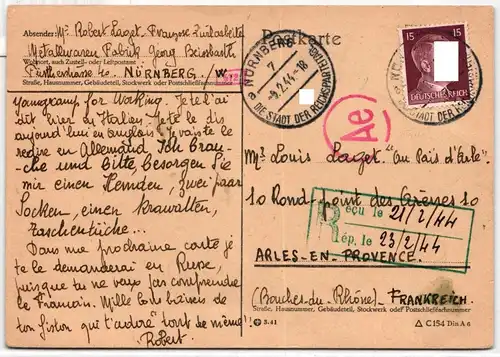 Absender: Mr Robert Laget. Franzose Zivilarbeiter
Metallwaren Fabrik Georg Beissbarth
Wohnort, auch Zustell- oder Leitpostamt
Fürtherstrasse NÜRNBERG / W
Straße, Hausnummer, Gebäudeteil, Stockwerk oder Postschließfachnummer
Postkarte
a NÜRNBERG 7
-4.2.44.-18
DIE STADT DER REICHSPARTEITAGE
15 15
DEUTSCHES REICH
Ae
for Waking. Je te l'ai
dit hier en Italien je te le dis
aujourd'hui en anglais je vais te le
redire en Allemand Ich brau-
che und bitte, besorgen Sie
mir einen Hemden, zwei paar
Socken, einen krawatten,
Taschentüche...
Dans ma prochaine carte je
te le demanderai en Russe,
puisque tu ne veux pas comprendre
le Français. Mille bons baisers de
ton fiston qui t'adore tout de même
Robert
Mr Louis Laget. "Au Païs d'Arle".
10 Rond point des Arènes 10
Reçu le 21/2/44
Rép. le 23/2/44
ARLES-EN-PROVENCE.
(Bouches-du-Rhône) - FRANKREICH.
Straße, Hausnummer, Gebäudeteil, Stockwerk oder Postschließfachnummer
3.41
C 154 Din A 6